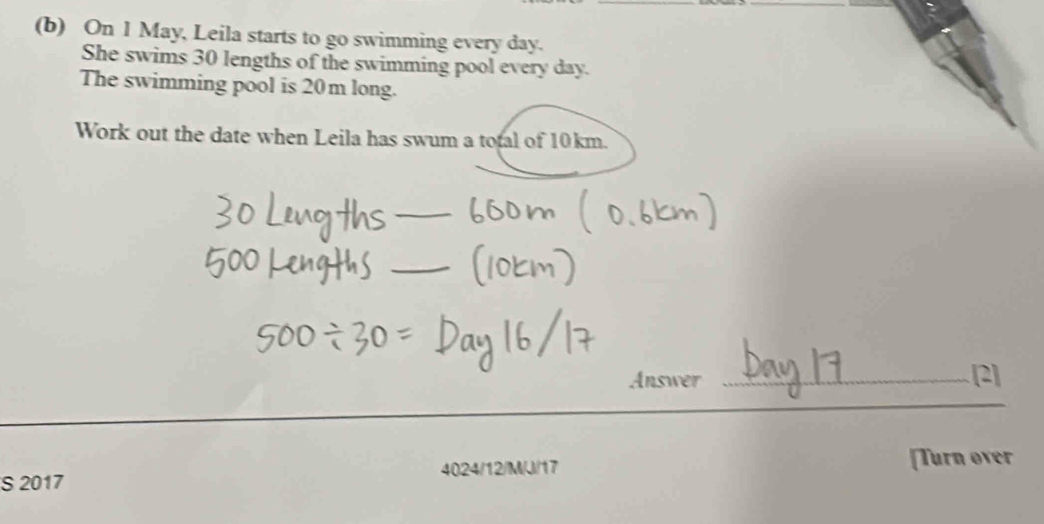 (b) On 1 May, Leila starts to go swimming every day.
She swims 30 lengths of the swimming pool every day.
The swimming pool is 20m long.
Work out the date when Leila has swum a total of 10km.
30 Lengths — 600m (0.6km)
500 Lengths — (10km)
500 ÷ 30 = Day 16/17
Answer Day 17 [2]
S 2017 4024/12/M/J/17 [Turn over